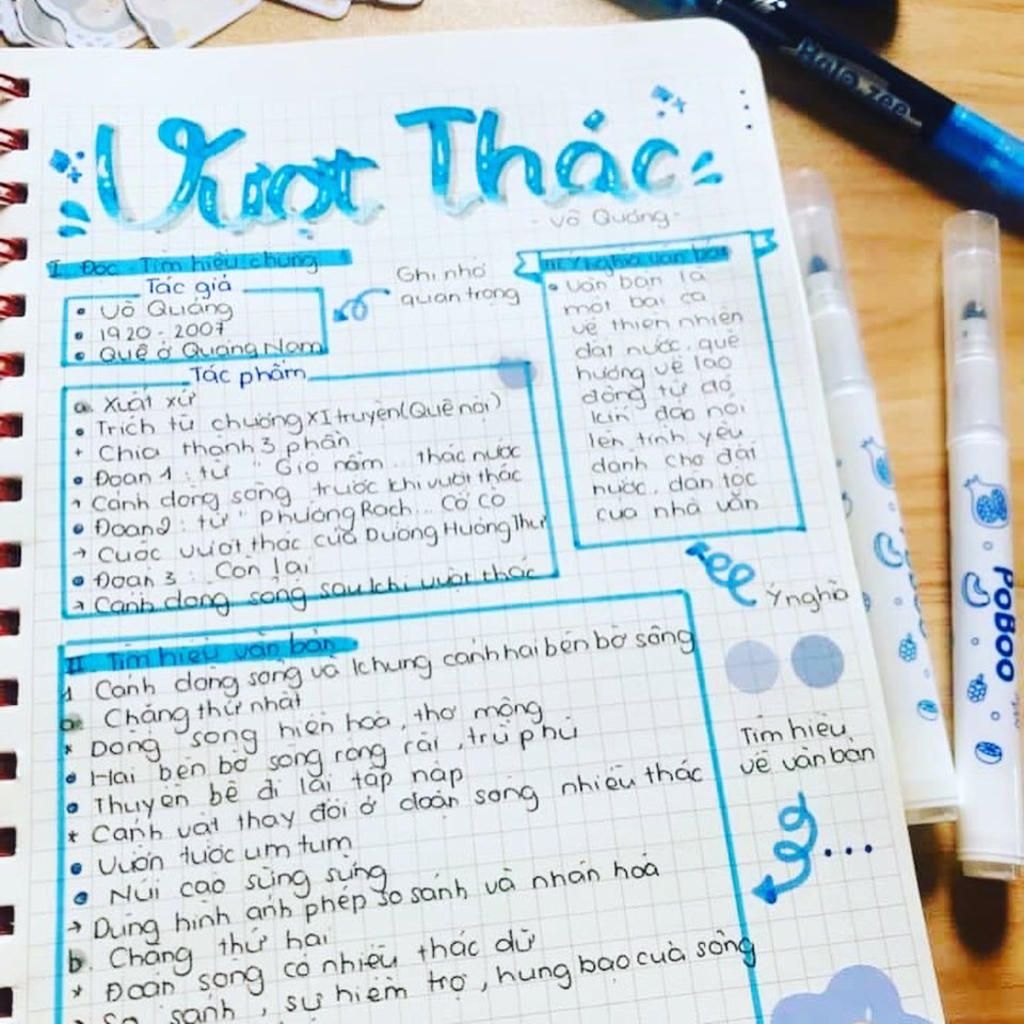 Vượt Thác
- Võ Quảng -
I. Đọc - Tìm hiểu chung
Tác giả
• Võ Quảng
• 1920 - 2007
• Quê ở Quảng Nam
Ghi nhớ
quan trọng
Tác phẩm
a. Xuất xứ
• Trích từ chương XI truyện (Quê nội)
+ Chia thành 3 phần
• Đoạn 1: từ " Gió nồm... thác nước
→ Cảnh dòng sông trước khi vượt thác
• Đoạn 2: từ " Phường Rạch... Cổ Cò
→ Cuộc vượt thác của Dượng Hương Thư
• Đoạn 3: Còn lại
→ Cảnh dòng sông sau khi vượt thác
III. Ý nghĩa văn bản
• Văn bản là
một bài ca
về thiên nhiên
đất nước, quê
hương về lao
động từ đó
kín đáo nói
lên tình yêu
dành cho đất
nước, dân tộc
của nhà văn
Ý nghĩa
II Tìm hiểu văn bản
1 Cảnh dòng sông và khung cảnh hai bên bờ sông
a. Chặng thứ nhất
* Dòng sông hiền hoà, thơ mộng
• Hai bên bờ sông rộng rãi, trù phú
• Thuyền bè đi lại tấp nập
* Cảnh vật thay đổi ở đoạn sông nhiều thác
• Vườn tược um tùm
• Núi cao sừng sững
→ Dùng hình ảnh phép so sánh và nhân hoá
b. Chặng thứ hai
* Đoạn sông có nhiều thác dữ
So sánh, sự hiểm trợ, hung bạo của sông
Tìm hiểu
về văn bản
...
Halo Zee
PoBoo